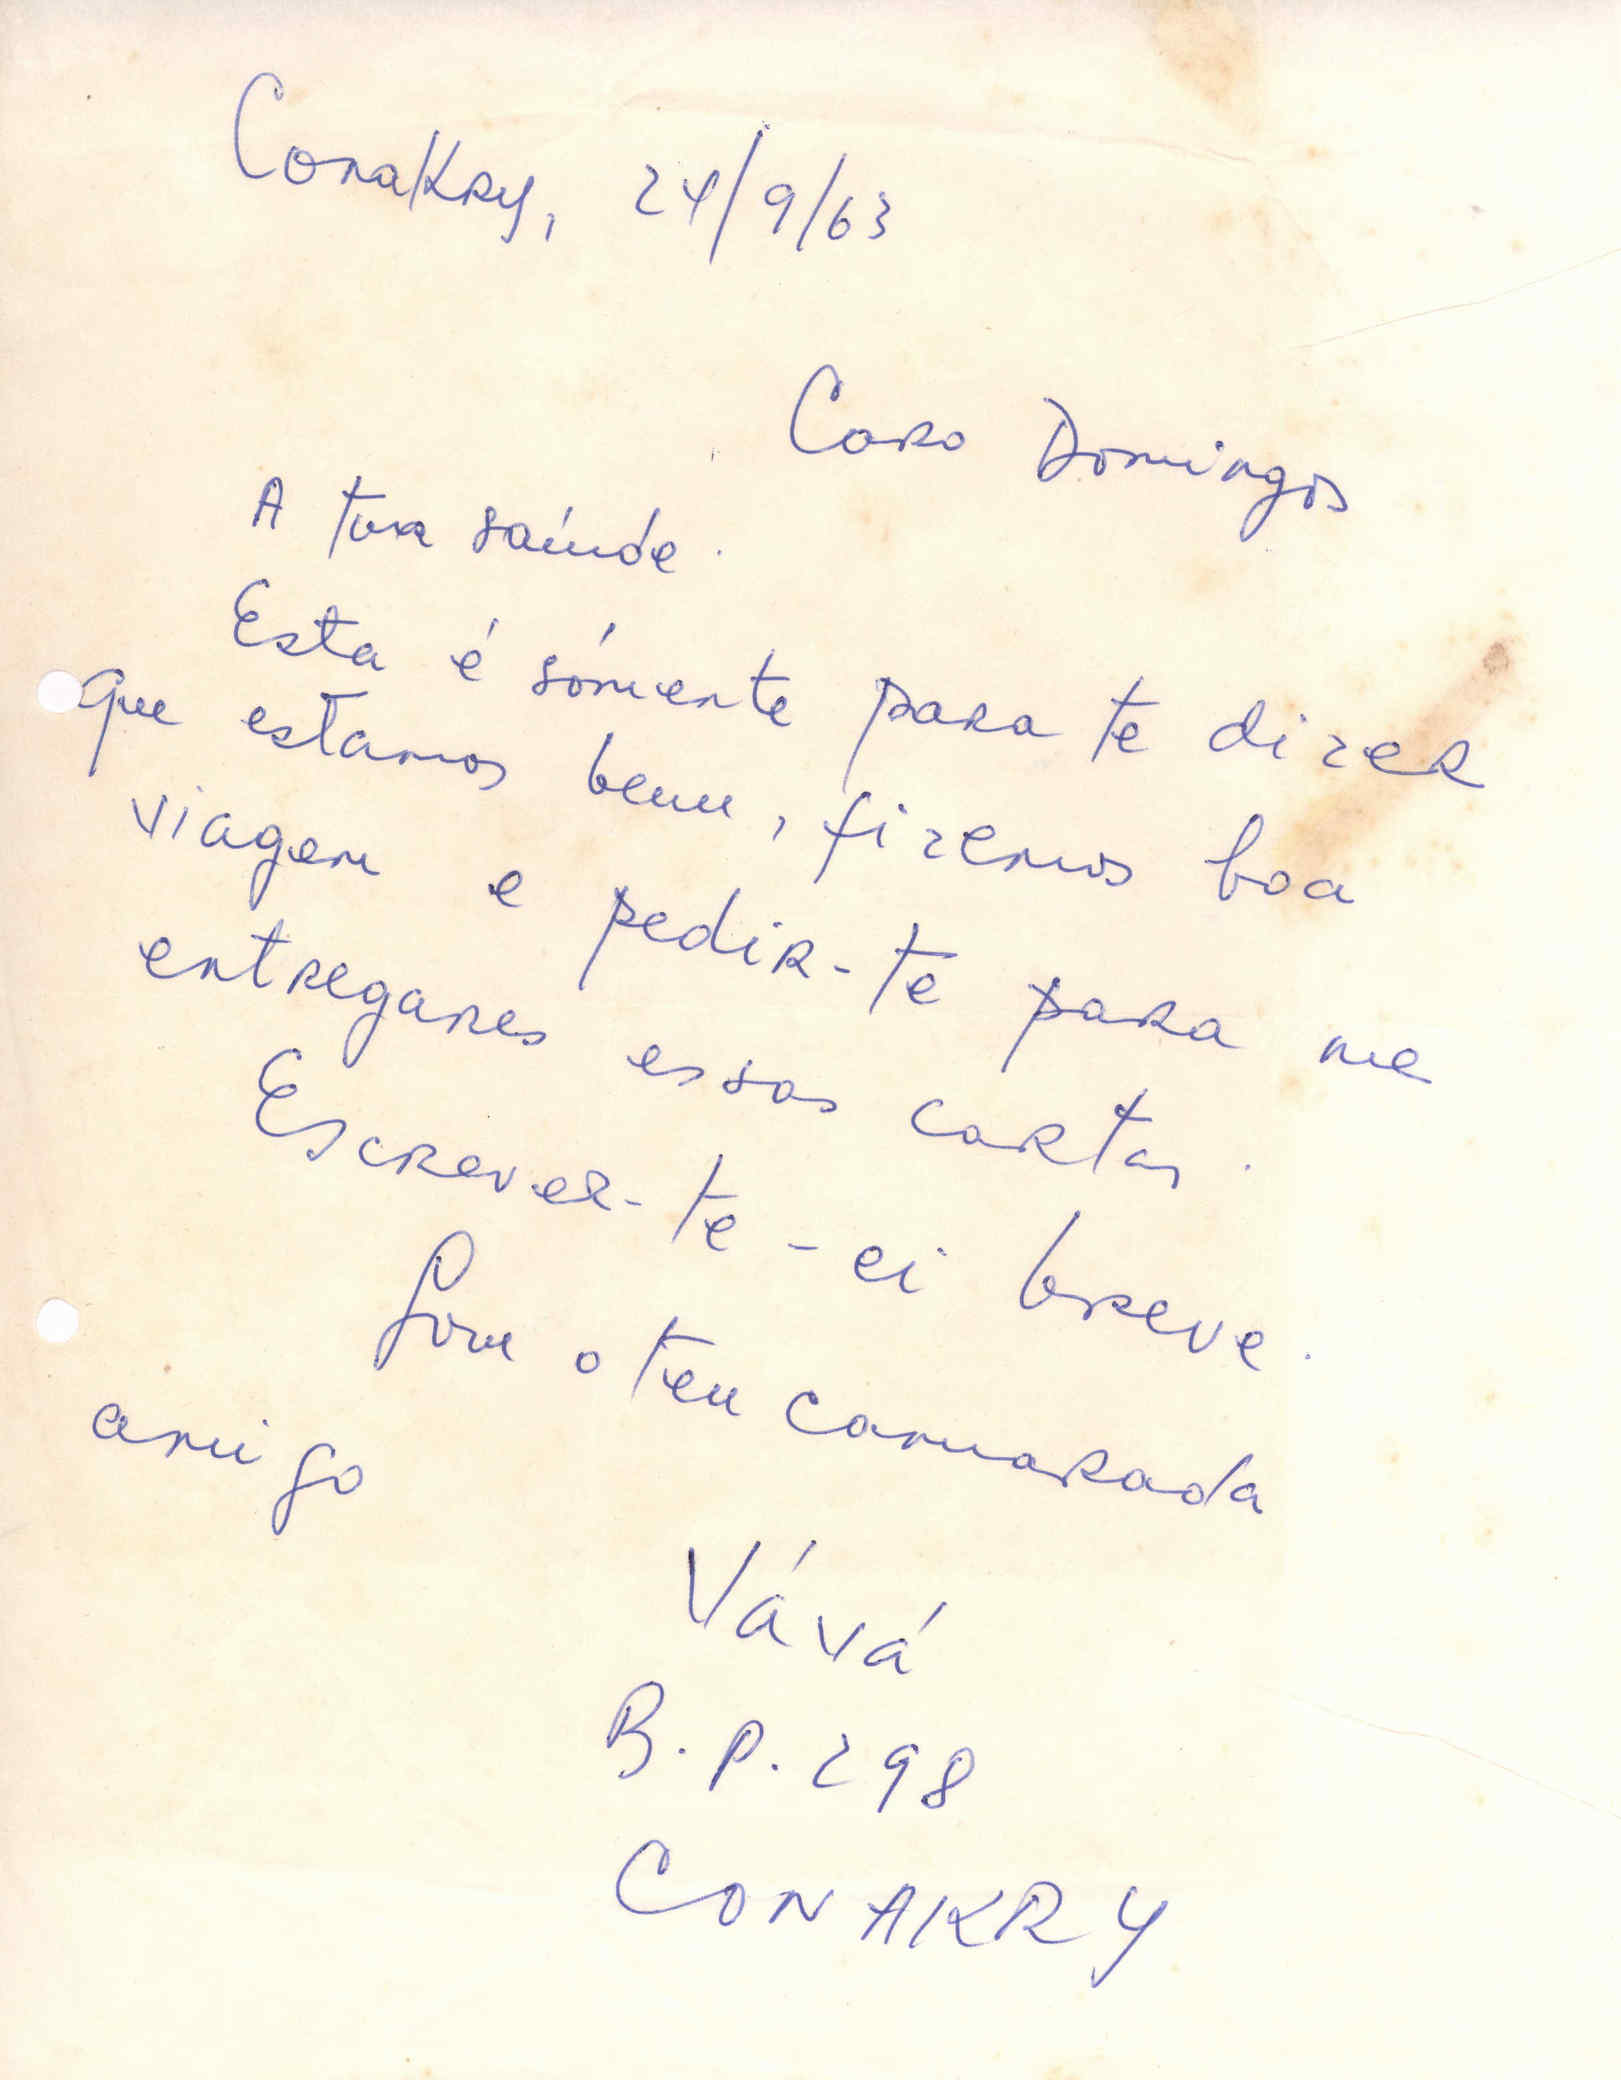 Conakry, 24/9/63
Caro Domingos
A tua saúde.
Esta é sómente para te dizer
que estamos bem, fizemos boa
viagem e pedir-te para me
entregares essas cartas.
Escrever-te-ei breve.
Sou o teu camarada
amigo
Vává
B.P. 298
CONAKRY